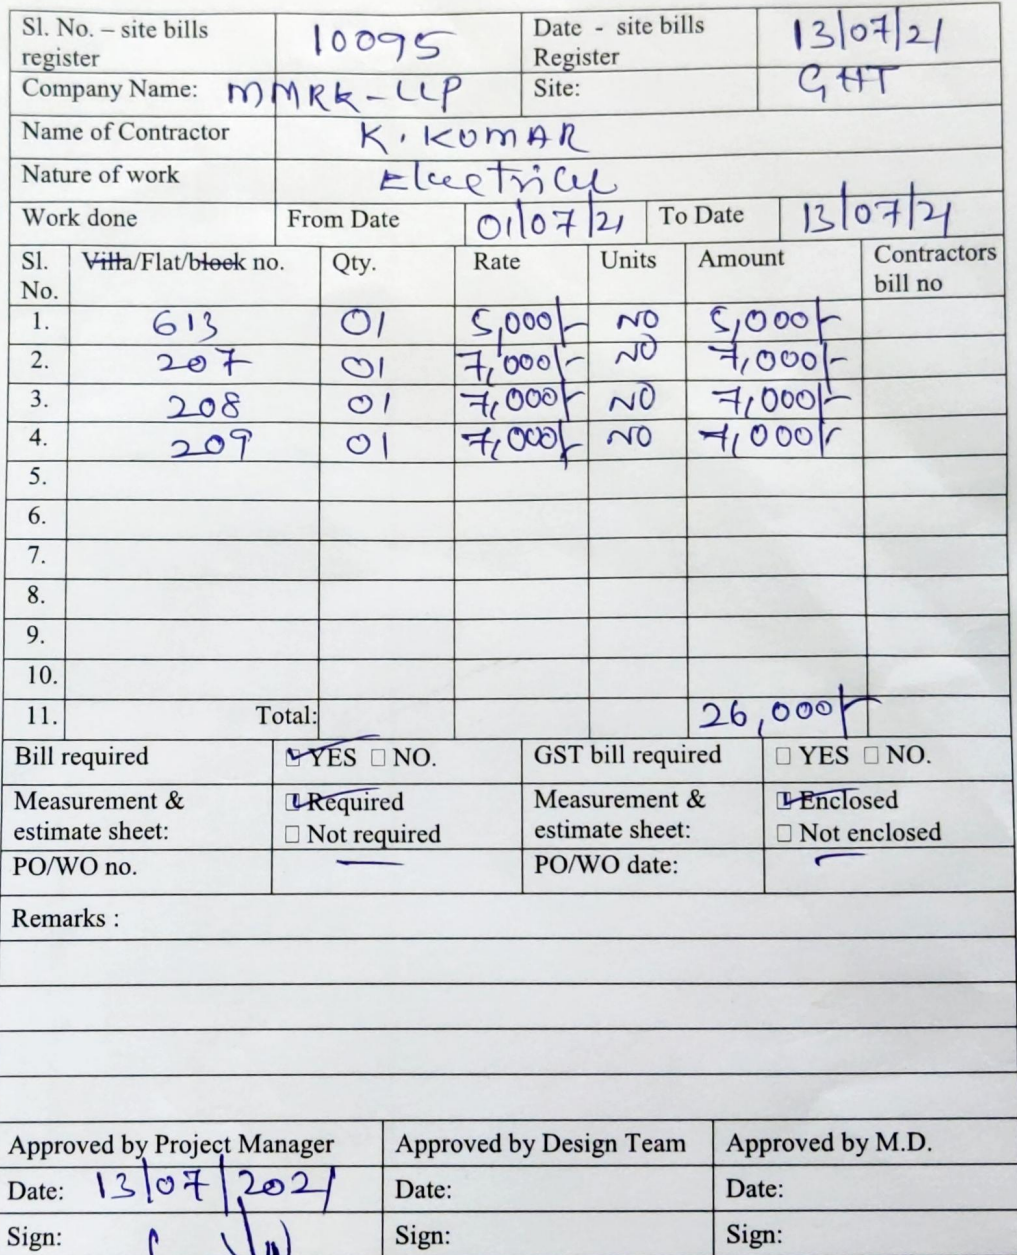 Sl. No. – site bills register 10095 Date - site bills Register 13/07/21
Company Name: MMRK-LLP Site: GHT
Name of Contractor K. KUMAR
Nature of work Electrical
Work done From Date 01/07/21 To Date 13/07/21
Sl. No. Villa/Flat/block no. Qty. Rate Units Amount Contractors bill no
1. 613 01 5,000/- NO 5,000/-
2. 207 01 7,000/- NO 7,000/-
3. 208 01 7,000/- NO 7,000/-
4. 209 01 7,000/- NO 7,000/-
5.
6.
7.
8.
9.
10.
11. Total: 26,000/-
Bill required ☑ YES ☐ NO. GST bill required ☐ YES ☐ NO.
Measurement & estimate sheet: ☑ Required ☐ Not required Measurement & estimate sheet: ☑ Enclosed ☐ Not enclosed
PO/WO no. — PO/WO date: —
Remarks :
Approved by Project Manager Approved by Design Team Approved by M.D.
Date: 13/07/2021 Date: Date:
Sign: Sign: Sign: